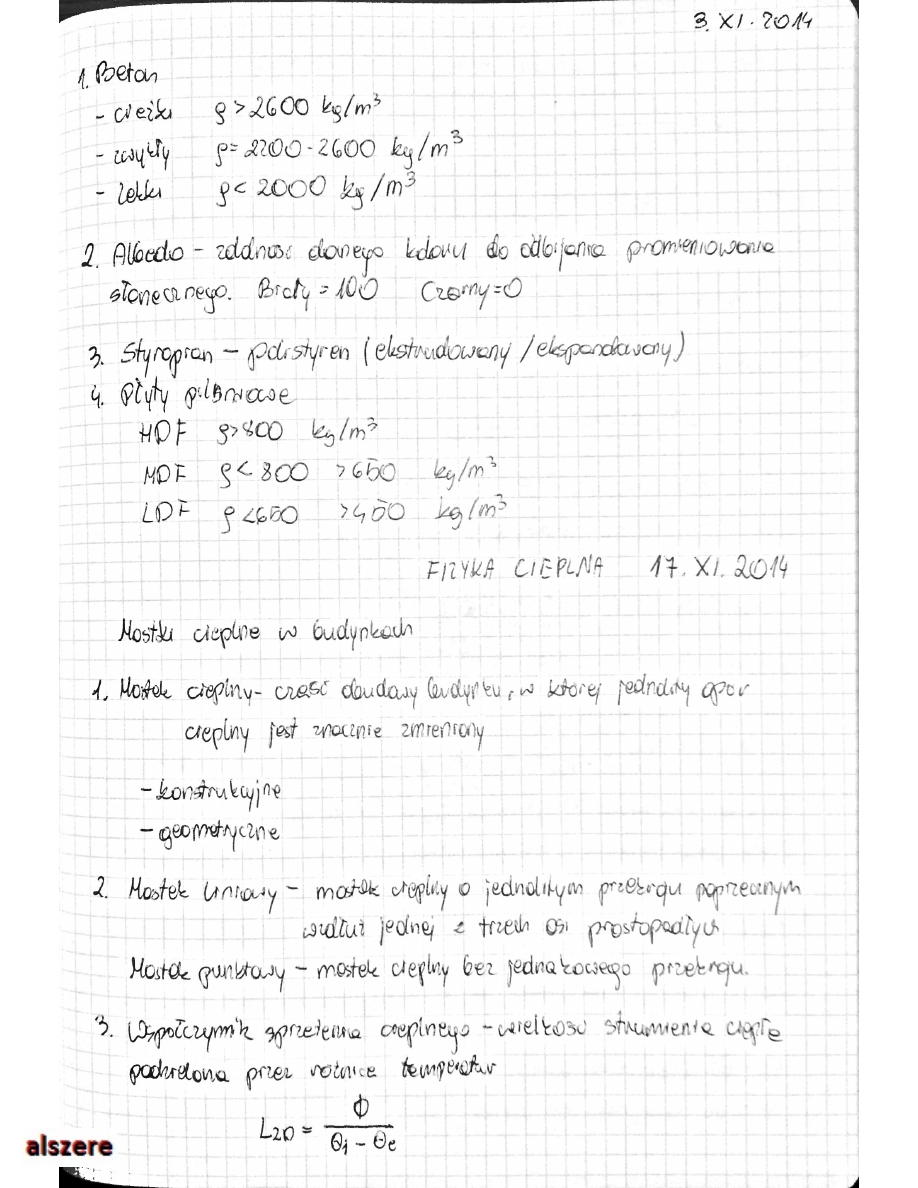 3. XI. 2014
1. Beton
- ciężki ρ > 2600 kg/m³
- zwykły ρ = 2200 - 2600 kg/m³
- lekki ρ < 2000 kg/m³
2. Albedo - zdolność danego koloru do odbijania promieniowania
słonecznego. Biały = 100 Czarny = 0
3. Styropian - polistyren (ekstrudowany / ekspandowany)
4. Płyty pilśniowe
HDF ρ > 800 kg/m³
MDF ρ < 800 > 650 kg/m³
LDF ρ < 650 > 450 kg/m³
FIZYKA CIEPLNA 17. XI. 2014
Mostki cieplne w budynkach
1. Mostek cieplny - część obudowy budynku, w której jednolity opór
cieplny jest znacznie zmieniony
- konstrukcyjne
- geometryczne
2. Mostek liniowy - mostek cieplny o jednolitym przekroju poprzecznym
wzdłuż jednej z trzech osi prostopadłych
Mostek punktowy - mostek cieplny bez jednakowego przekroju.
3. Współczynnik sprzężenia cieplnego - wielkość strumienia ciepła
podzielona przez różnicę temperatur
L₂D = Φ / (Θi - Θe)
alszere